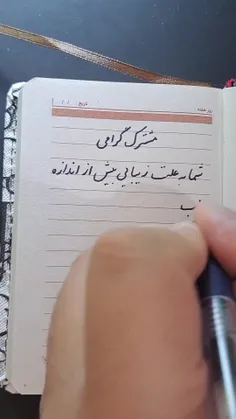 مشترک گرامی
شما به علت زیبایی بیش از اندازه